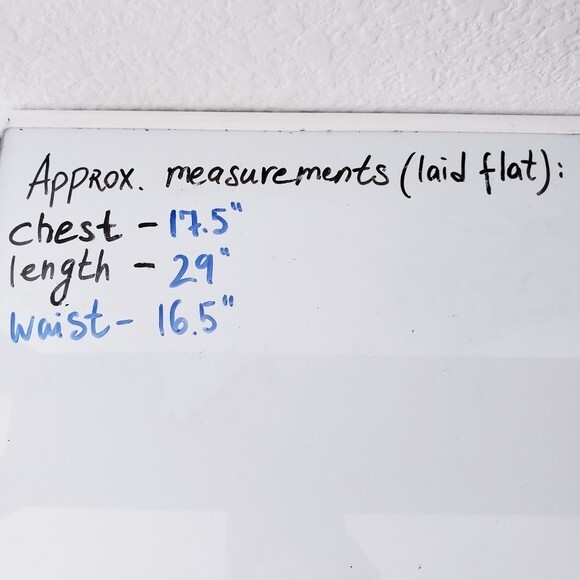 Approx. measurements (laid flat):
chest - 17.5"
length - 29"
waist - 16.5"